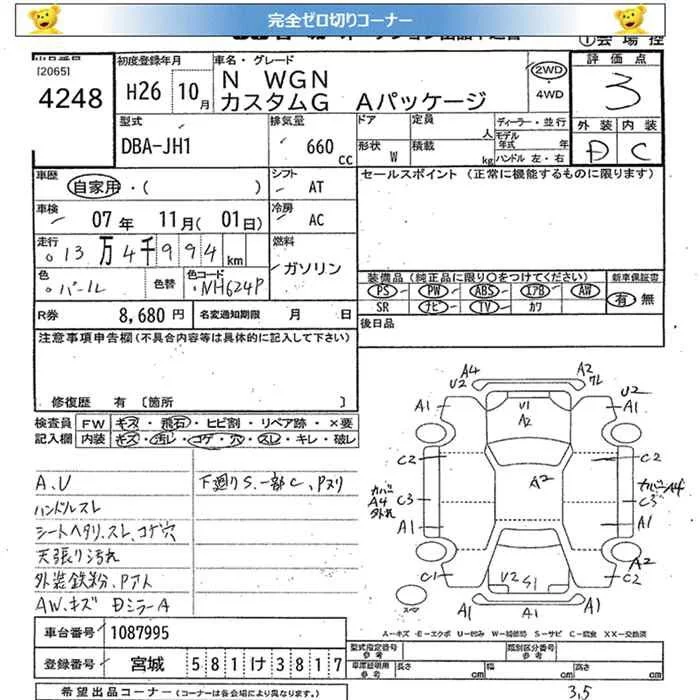 完全ゼロ切りコーナー
[2065]
4248
初度登録年月
H26 10月
車名・グレード
N WGN
カスタムG Aパッケージ
2WD
・4WD
評価点
3
外装 内装
D C
型式
DBA-JH1
排気量
660 cc
ドア 定員 人
形状 W 積載 kg
ディーラー・並行
モデル年式 年
ハンドル 左・右
車歴
自家用・( )
シフト
AT
セールスポイント (正常に機能するものに限ります)
車検
07年 11月(01日)
冷房
AC
走行
13万4千994km
燃料
ガソリン
色
パール
色替
色コード
NH624P
装備品(純正品に限り○をつけてください)
PS PW ABS エアB AW
SR ナビ TV カワ
新車保証書
有 無
R券 8,680円 名変通知期限 月 日
後日品
注意事項申告欄(不具合内容等は具体的に記入して下さい)
修復歴 有 〔箇所 〕
検査員記入欄
FW キズ・飛石・ヒビ割・リペア跡・×要
内装 キズ・汚レ・コゲ・穴・スレ・キレ・破レ
A、U
ハンドルスレ
シートヘタリ、スレ、コゲ穴
天張り汚れ
外装鉄粉、Pアト
AW、キズ DミラーA
下廻りS、一部C、Pヌリ
A4
U2
A2
ワレ
U2
A1
A1
U1
A2
C2
C2
A2
カバー
A4
外れ
C3
カバーA4
C3
A1
A1
A2
C1
C2
U2
S1
スペア
A1
A1
A1
A-キズ E-エクボ U-凹み W-補修跡 S-サビ C-腐食 XX-交換済
車台番号 1087995
登録番号 宮城 581け3817
型式指定番号
参考
類別区分番号
参考
車庫証明用
参考
長さ cm 幅 cm 高さ cm
希望出品コーナー(コーナーは各会場により異なります。)
3.5